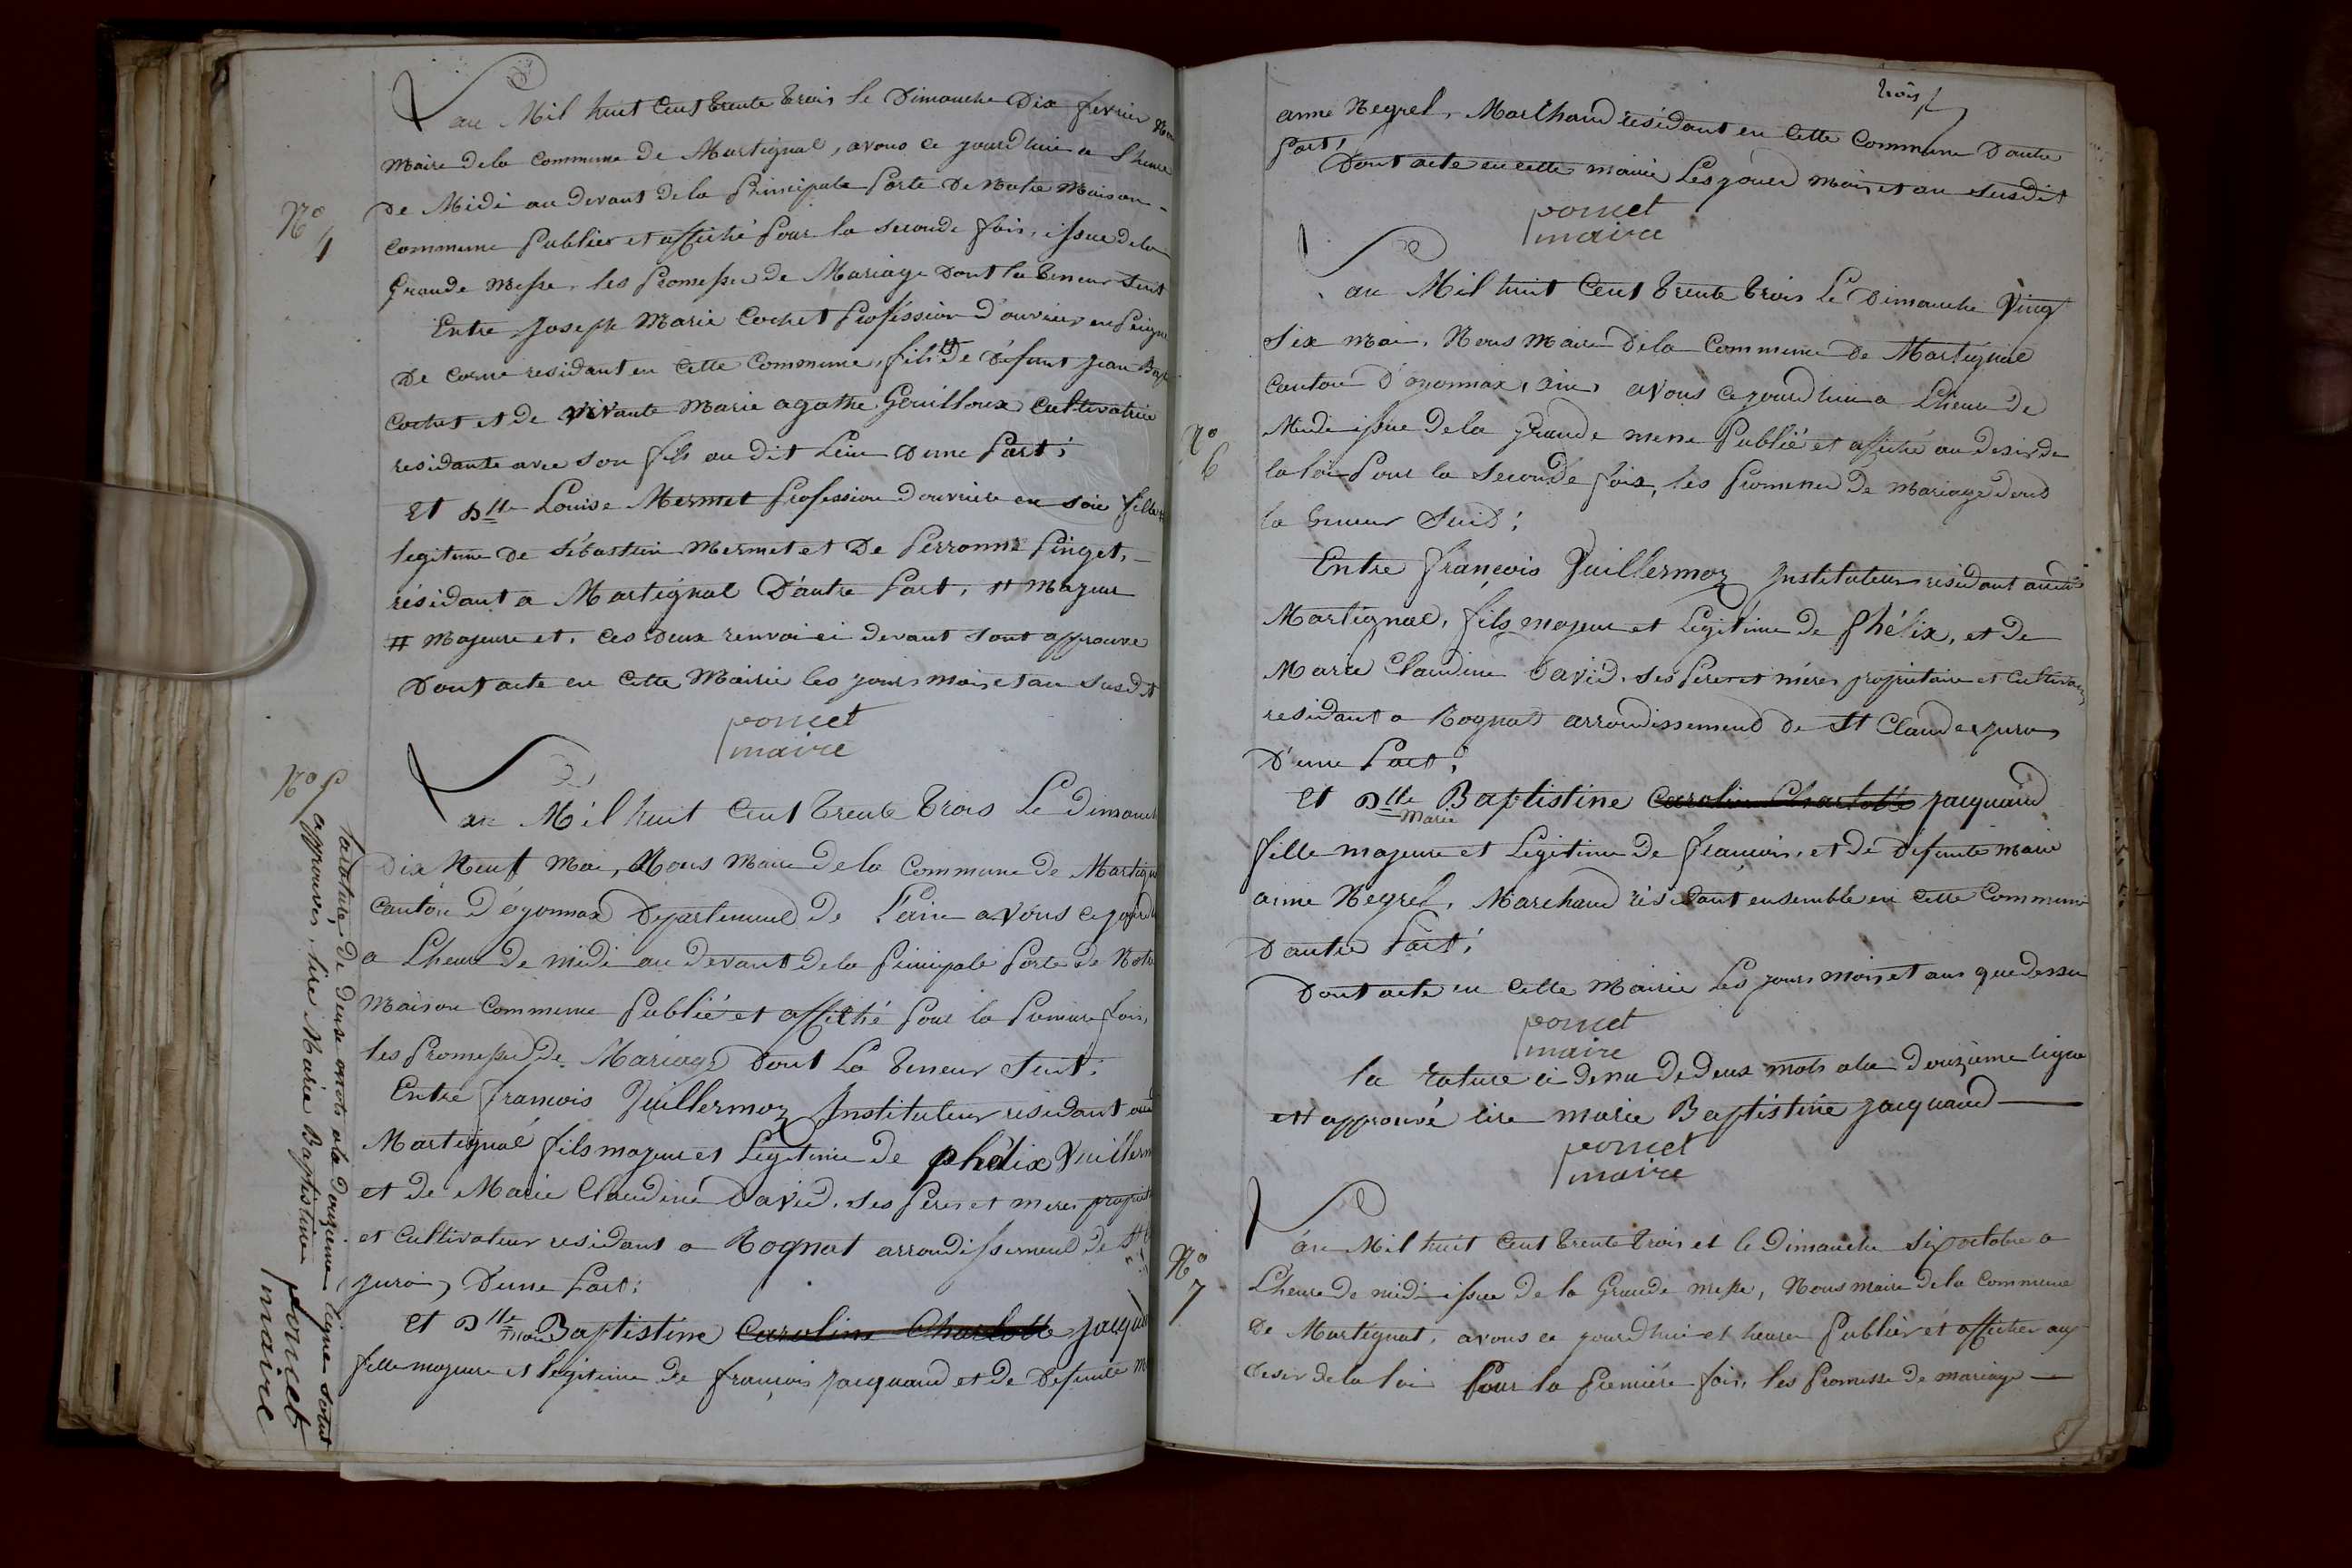 N° 4
L'an Mil huit Cent trente trois le Dimanche Dix fevrier Nous
Maire de la Commune de Martignat, avons ce jourd'hui a l'heure
De Midi au devant de la Principale Porte De Notre Maison-
commune Publier et affiché Pour la seconde fois, issue de la
Grande Messe, les Promesses de Mariage Dont la teneur suit
Entre Joseph Marie Cochet Profession d'ouvrier en Peigne
De corne residant en Cette Commune, fils # De Défunt Jean Bap
Cochet et de vivante Marie agathe Gouilloux Cultivatrice
residante avec son fils au dit Lieu D'une Part;
Et Dlle Louise Mermet Profession d'ouvriere en soie fille #
legitime de Sébastien Mermet et De Perronne Pinget, -
résidant a Martignat D'autre Part, # Majeur
# Majeure et. Ces deux renvoi ci devant sont approuve
Dont acte en Cette Mairie les jours mois et an susdit
poncet
maire
N° 5
L'an Mil huit Cent trente trois Le dimanch
Dix Neuf Mai, Nous Maire de la Commune de Martign
Canton D'oyonnax Departement de L'ain avons ce jourdh
a L'heure de midi au devant de la Principale Porte de Notre
Maison Commune Publié et affiché Pour la Premiere fois,
les Promesses de Mariage Dont La teneur suit:
Entre francois Vuillermoz Instituteur residant audi
Martignat fils majeur et Légitime de phélix Vuillerm
et de Marie Claudine David, ses Peres et meres propriet
et Cultivateur residant a Rognat arrondissement de St
(jura) D'une Part;
Et Dlle Marie Baptistine Caroline Charlotte Jacquan
fille majeure et légitime de francois jacquand et de Defunte M
la rature de deux mots a la douzieme ligne sont
approuvés, lire Marie Baptistine
poncet
maire
trois
anne Negrel, Marchand résidant en Cette Commune D'autre
Part;
Dont acte en cette mairie Les jours Mois et an susdit
poncet
maire
N° 6
L'an Mil huit Cent trente trois Le Dimanche Vingt
Six mai, Nous Maire De la Commune De Martignat
Canton D'oyonnax, ain, avons ce jourdhui a L'heure de
Midi issue de la Grande messe Publié et affiché au desir de
la loi Pour la seconde fois, les Promesses De Mariage dont
la teneur suit;
Entre françois Vuillermoz Instituteur residant audit
Martignat, fils majeur et Légitime de Phélix, et de
Marie Claudine David, ses Peres et méres propriétaire et Cultivateur
residant a Rognat arrondissement de St Claude, jura,
D'une Part;
Et Dlle Marie Baptistine Caroline Charlotte jacquand
fille majeure et Légitime de francois, et de Défunte Marie
anne Negrel, Marchand résidant ensemble en Cette Commune
D'autre Part;
Dont acte en Cette Mairie Les jours mois et an que dessus
poncet
maire
la rature ci dessu de Deux mots a la douzieme ligne
est approuvé lire Marie Baptistine jacquand
poncet
maire
N° 7
L'an Mil huit Cent trente trois et le Dimanche six octobre a
L'heure de midi issue de la Grande Messe, Nous maire de la Commune
De Martignat, avons ce jourdhui et heure Publier et afficher au
desir de la loi Pour la Premiére fois, les Promesse de mariage